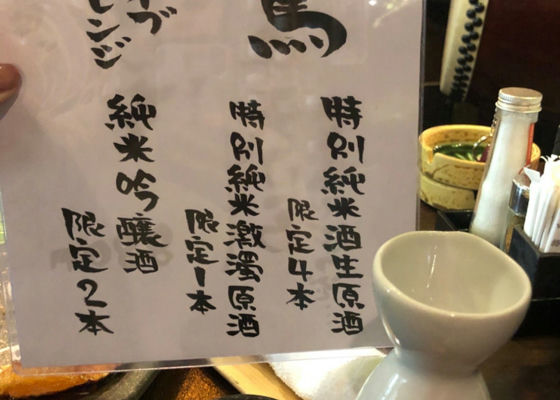 馬
特別純米酒生原酒
限定4本
特別純米激濁原酒
限定1本
イブ
レンジ
純米吟醸酒
限定2本